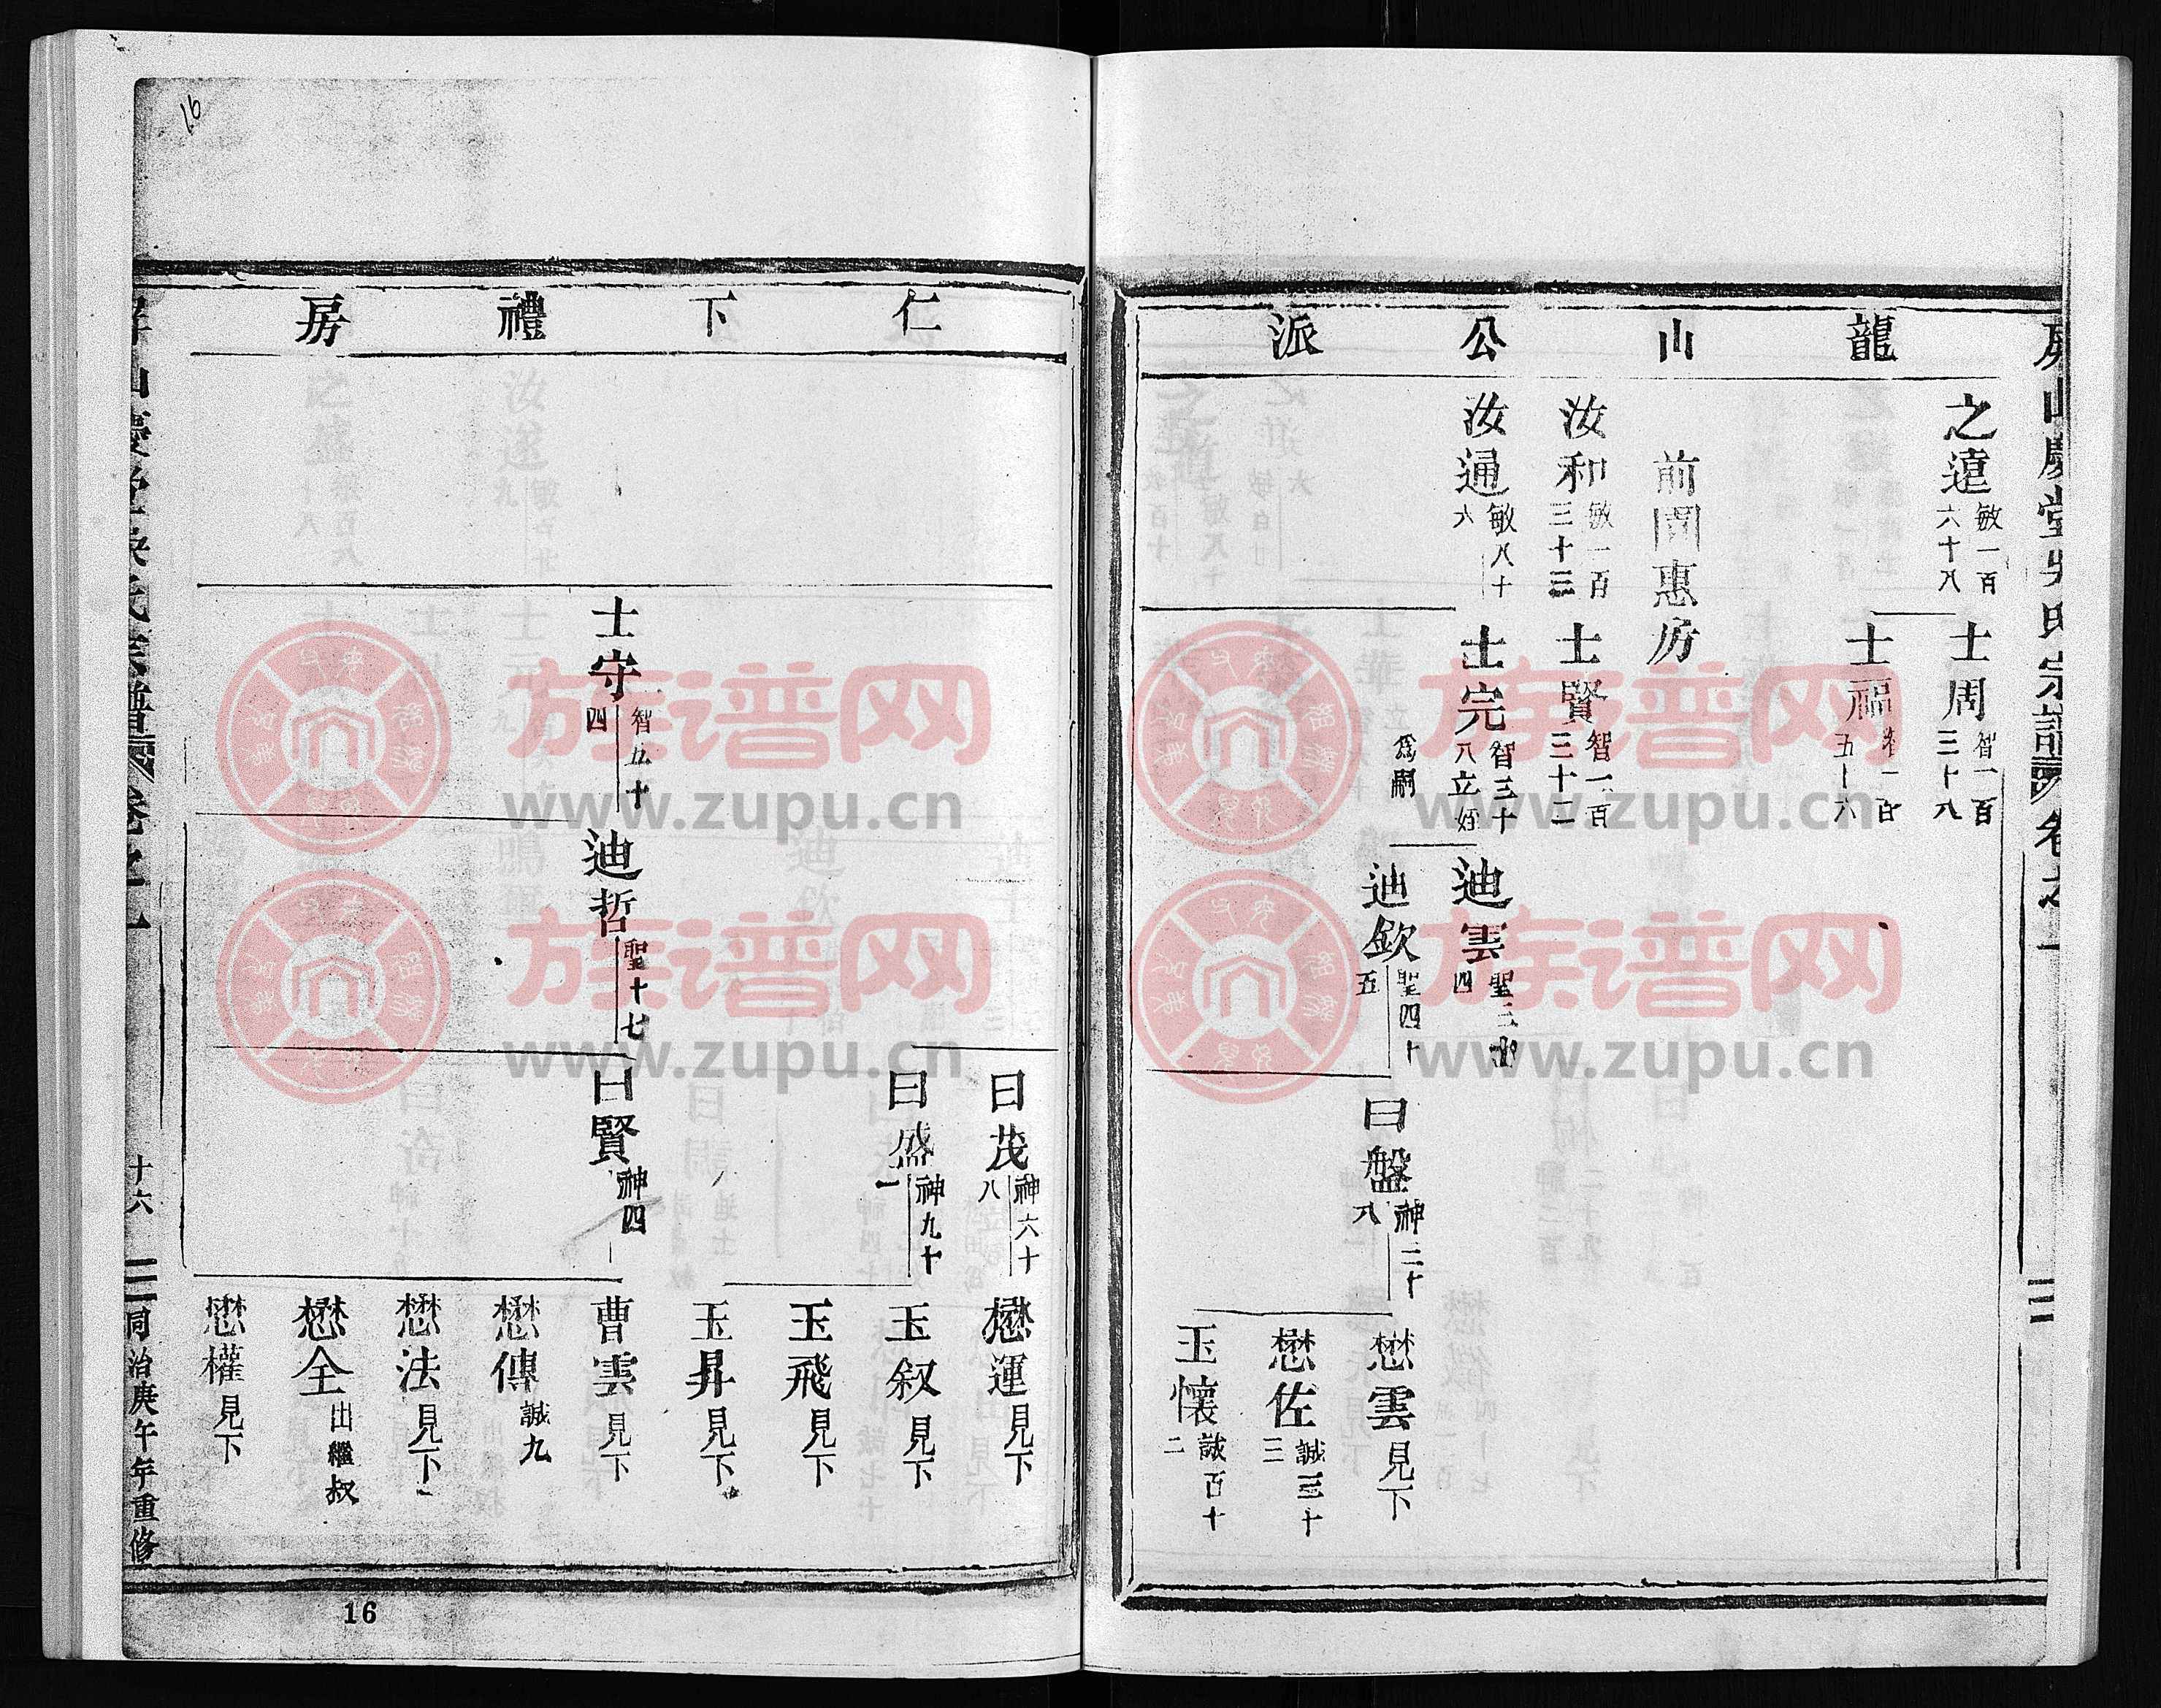 龍山公派
之遠 敏一百六十八
士周 智一百三十八
士福 智一百五十六
前園惠房
汝和 敏一百三十三
士賢 智一百三十二
汝通 敏八十六
士完 智三十八立姪為嗣
迪雲
迪欽 聖四十五
曰盤 神二十八
懋雲 見下
懋佐 誠三十三
玉懷 誠百十二
仁下禮房
曰茂 神六十八
懋運 見下
曰盛 神九十一
玉叙 見下
玉飛 見下
玉昇 見下
士守 智五十四
迪哲 聖十七
曰賢 神四
曹雲 見下
懋傳 誠九
懋法 見下
懋全 出繼叔
懋權 見下
十六
同治庚午年重修
16
16
族谱网
www.zupu.cn
族谱网
www.zupu.cn
族谱网
www.zupu.cn
族谱网
www.zupu.cn